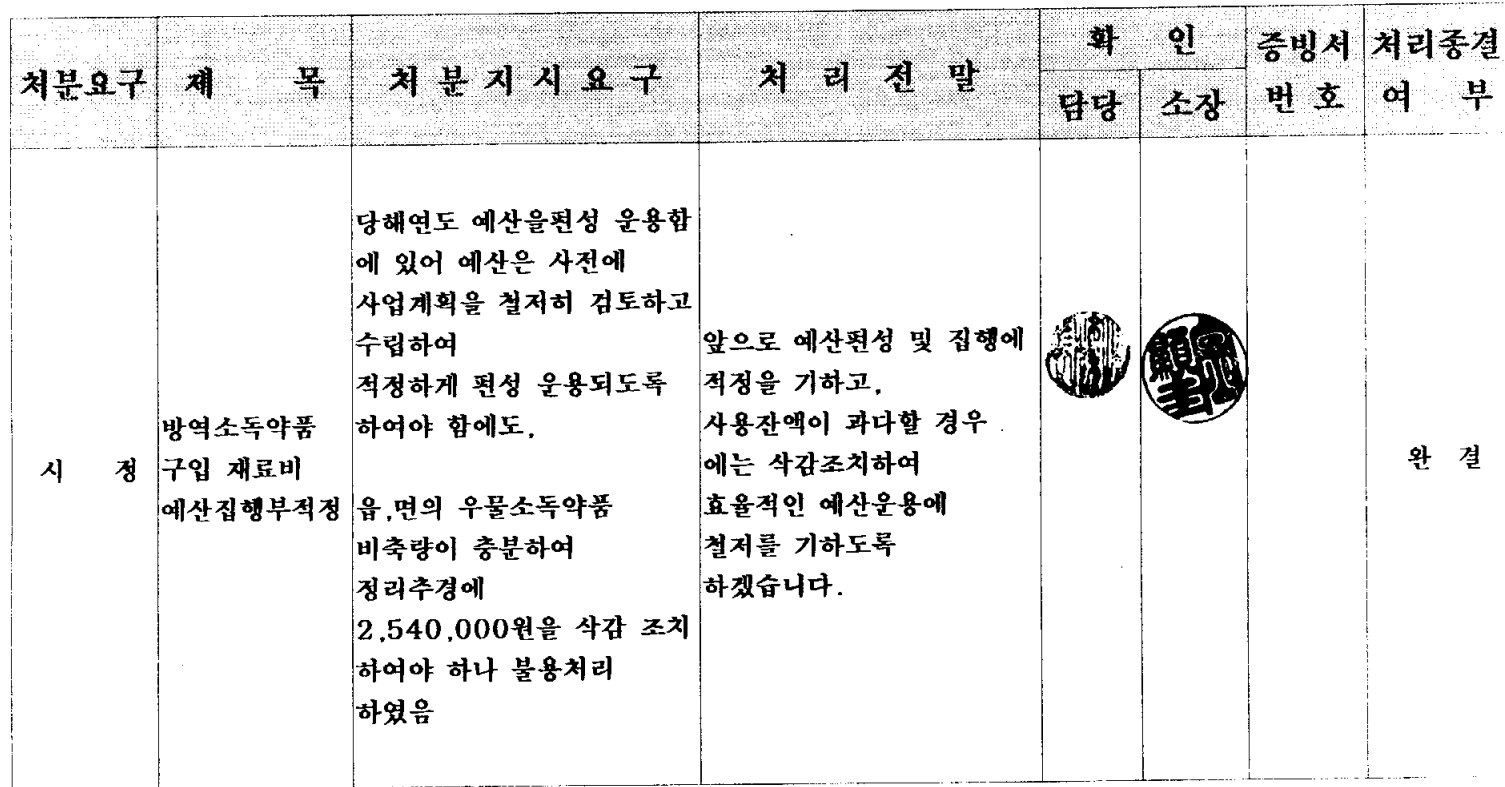 처분요구 제 목 처 분 지 시 요 구 처 리 전 말 확 인 증빙서 번 호 처리종결 여 부
담당 소장
시 정
방역소독약품
구입 재료비
예산집행부적정
당해연도 예산을편성 운용함
에 있어 예산은 사전에
사업계획을 철저히 검토하고
수립하여
적정하게 편성 운용되도록
하여야 함에도,
읍,면의 우물소독약품
비축량이 충분하여
정리추경에
2,540,000원을 삭감 조치
하여야 하나 불용처리
하였음
앞으로 예산편성 및 집행에
적정을 기하고,
사용잔액이 과다할 경우
에는 삭감조치하여
효율적인 예산운용에
철저를 기하도록
하겠습니다.
완 결